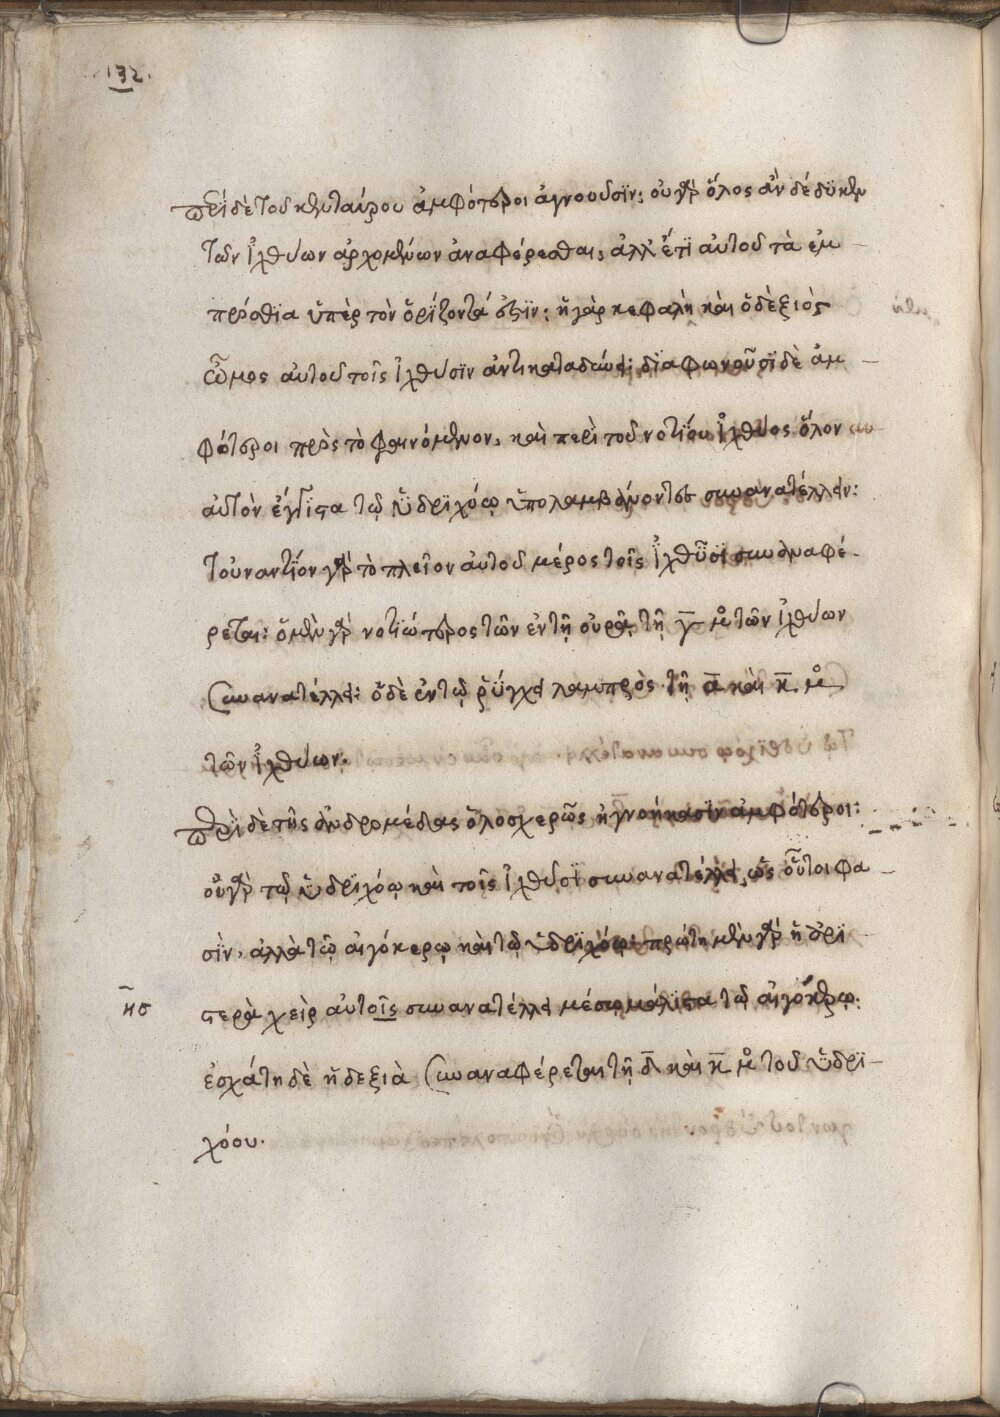 132.
περὶ δὲ τοῦ κενταύρου ἀμφότεροι ἀγνοοῦσϊν: οὐ γὰρ ὅλος ἂν δέδϋκεν
τῶν ἰχθύων ἀρχομένων ἀναφέρεσθαι: ἀλλ' ἔτϊ αὐτοῦ τὰ ἐμ
πρόσθϊα ὑπὲρ τὸν ὁρίζοντά ἐστϊν: ἡ γὰρ κεφαλὴ καὶ ὁ δεξιὸς
ὦμος αὐτοῦ τοῖς ἰχθύσϊν ἀντικαταδύνει: δϊαφωνοῦσϊ δὲ ἀμ
φότεροι πρὸς τὸ φαινόμενον, καὶ περὶ τοῦ νοτίου ἰχθύος ὅλον
αὐτὸν ἔγγϊστα τῷ ὑδρϊχόῳ ὑπολαμβάνοντες συνανατέλλειν:
τοὐναντίον γὰρ τὸ πλεῖον αὐτοῦ μέρος τοῖς ἰχθῦσϊ συναναφέ
ρεται: ὁ μὲν γὰρ νοτϊώτερος τῶν ἐν τῇ οὐρᾷ, τῇ γ̅ μο τῶν ἰχθύων
συνανατέλλει: ὁ δὲ ἐν τῷ ῥύγχει λαμπρὸς τῇ α̅ καὶ κ̅ μο
τῶν ἰχθύων.
περὶ δὲ τῆς ἀνδρομέδας ὁλοσχερῶς ἠγνοήκασϊν ἀμφότεροι:
οὐ γὰρ τῷ ὑδρϊχόῳ καὶ τοῖς ἰχθύσϊ συνανατέλλει, ὡς οὗτοι φα
σὶν, ἀλλὰ τῷ αἰγόκερῳ καὶ τῷ ὑδρϊχόῳ: πρώτη μὲν γὰρ ἡ ἀρϊ
στερὰ χεὶρ αὐτοῖς συνανατέλλει μέσῳ μάλϊστα τῷ αἰγόκερῳ:
ἐσχάτη δὲ ἡ δεξιὰ συναναφέρεται τῇ δ̅ καὶ κ̅ μο τοῦ ὑδρϊ
χόου.